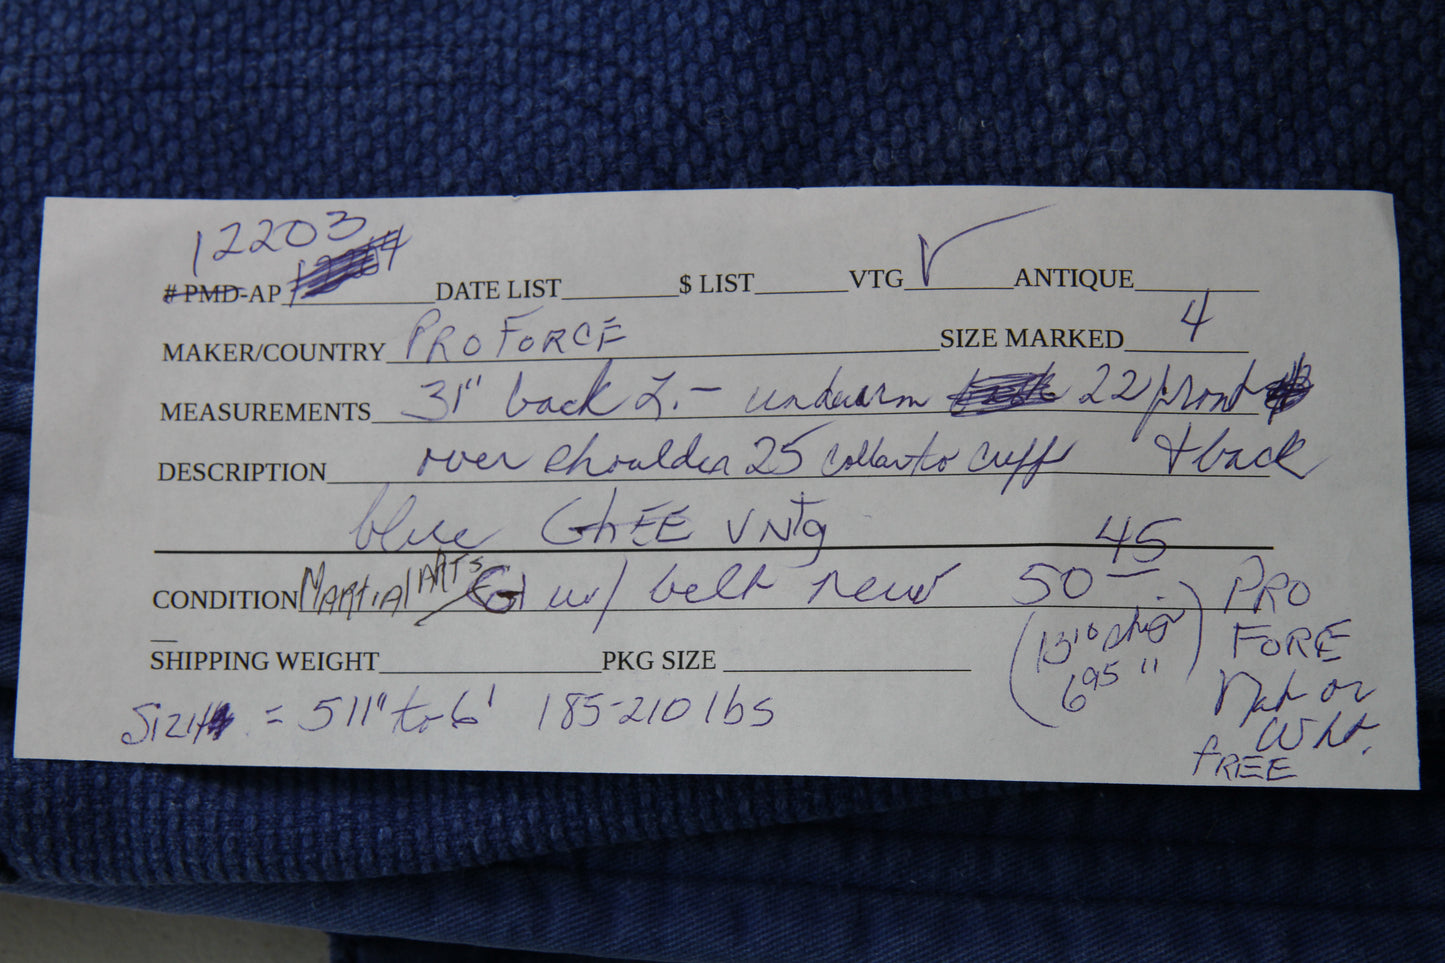 12203
# PMD-AP DATE LIST $ LIST VTG √ ANTIQUE
MAKER/COUNTRY PRO FORCE SIZE MARKED 4
MEASUREMENTS 31" back L. - underarm 22 front
DESCRIPTION over shoulder 25 collar to cuff + back
blue GhEE VNTg 45
CONDITION MARTIAL ARTS GI w/ belt new 50 — PRO
(13 10 ship FORE
SHIPPING WEIGHT PKG SIZE
6 95 ") Nat or
Size = 5 11" to 6' 185-210 lbs Wht.
FREE